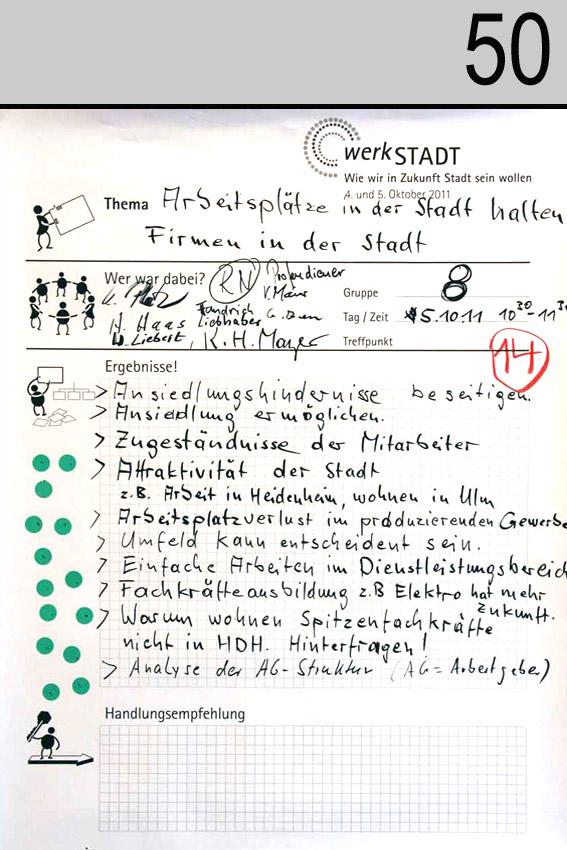 50
werkSTADT
Wie wir in Zukunft Stadt sein wollen
4. und 5. Oktober 2011
Thema Arbeitsplätze in der Stadt halten
Firmen in der Stadt
Wer war dabei? RN
V. Maier
Gruppe 8
H. Haas Liebhaber
Tag / Zeit 5.10.11 10 30 - 11 30
Liebert, K. H. Mayer
Treffpunkt
14
Ergebnisse!
> Ansiedlungshindernisse beseitigen.
> Ansiedlung ermöglichen.
> Zugeständnisse der Mitarbeiter
> Attraktivität der Stadt
z.B. Arbeit in Heidenheim, wohnen in Ulm
> Arbeitsplatzverlust im produzierenden Gewerbe
> Umfeld kann entscheident sein.
> Einfache Arbeiten im Dienstleistungsbereich
> Fachkräfteausbildung z.B Elektro hat mehr
Zukunft.
> Warum wohnen Spitzenfachkräfte
nicht in HDH. Hinterfragen!
> Analyse der AG-Struktur (AG = Arbeitgeber)
Handlungsempfehlung